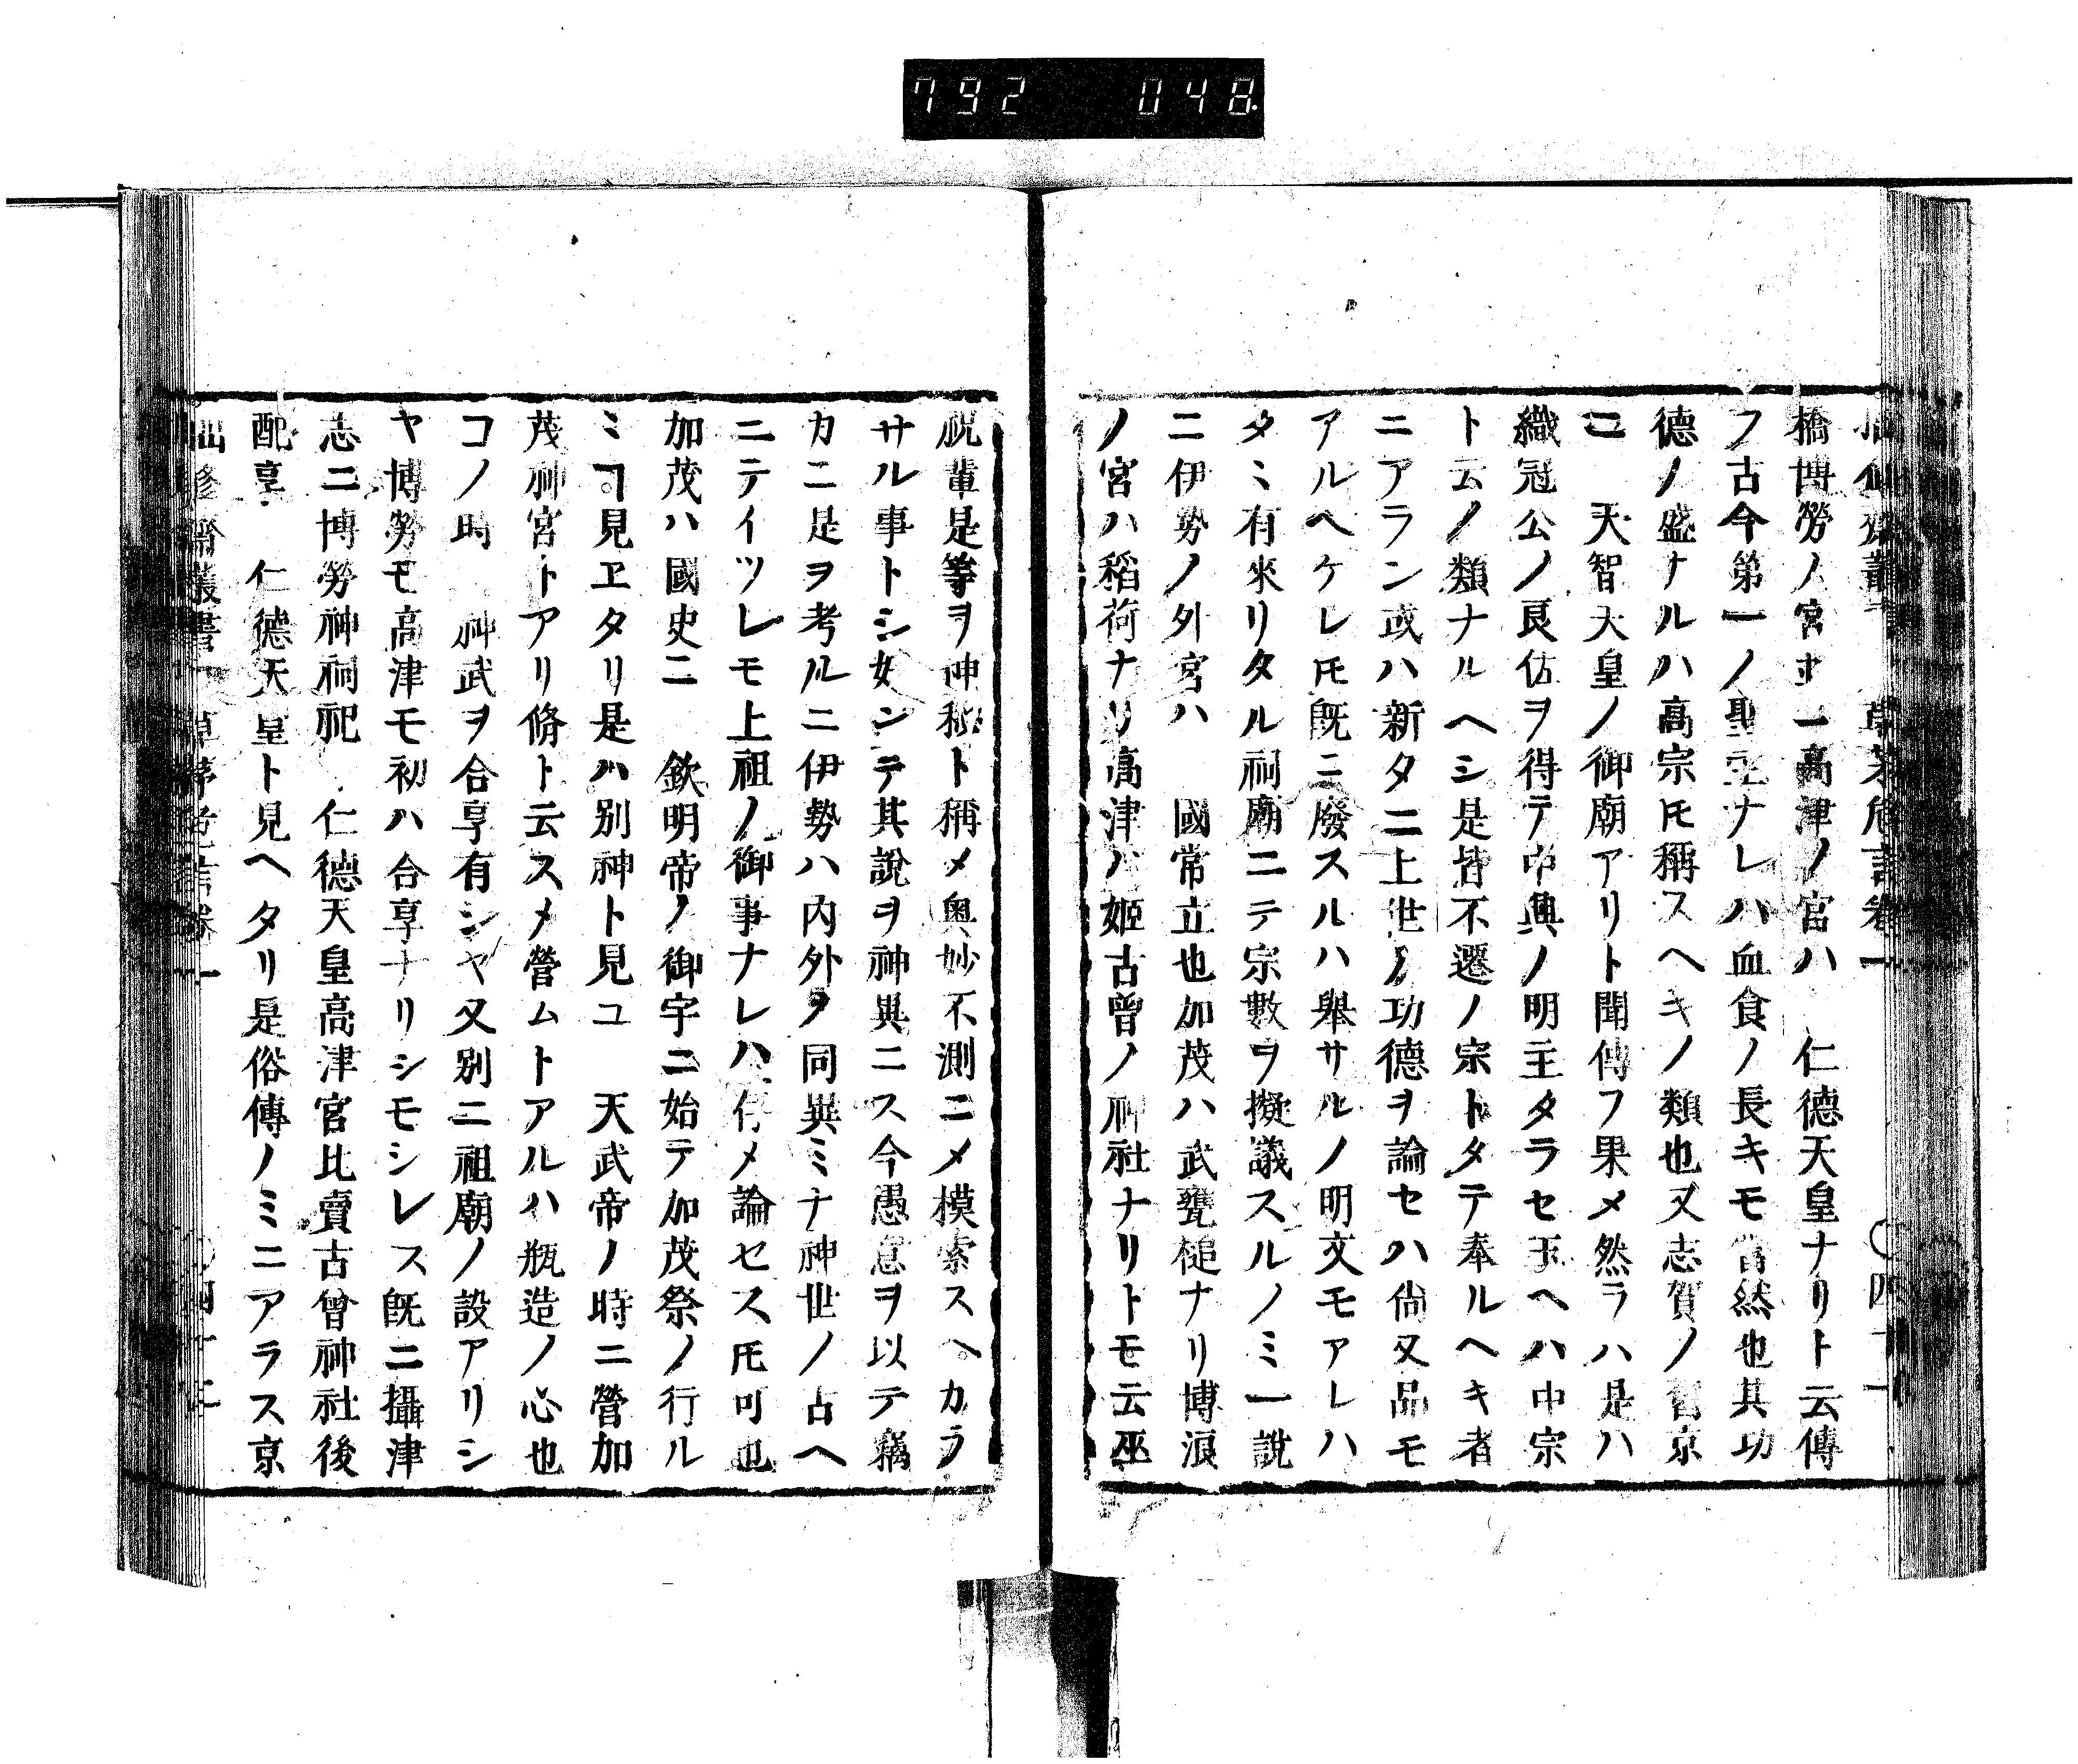 792 048
橋博勞ノ宮オ一高津ノ宮ハ　仁德天皇ナリト云傳
フ古今第一ノ聖主ナレハ血食ノ長キモ當然也其功
德ノ盛ナルハ高宗𪜈稱スヘキノ類也又志賀ノ舊京
ニ　天智天皇ノ御廟アリト聞傳フ果メ然ラハ是ハ
織冠公ノ良佐ヲ得テ中興ノ明主タラセ玉ヘハ中宗
ト云ノ類ナルヘシ是皆不遷ノ宗トタテ奉ルヘキ者
ニアラン或ハ新タニ上世ノ功德ヲ論セハ尙又品モ
アルヘケレ𪜈旣ニ廢スルハ舉サルノ明文モアレハ
タミ有來リタル祠廟ニテ宗數ヲ擬議スルノミ一說
ニ伊勢ノ外宮ハ　國常立也加茂ハ武甕槌ナリ博浪
ノ宮ハ稻荷ナリ高津ハ姬古曾ノ神社ナリトモ云巫
祝輩是等ヲ神秘ト稱メ奧妙不測ニメ模索スヘカラ
サル事トシ好ンテ其說ヲ神異ニス今愚意ヲ以テ竊
カニ是ヲ考ルニ伊勢ハ內外ヲ同異ミナ神世ノ古ヘ
ニテイツレモ上祖ノ御事ナレハ存メ論セス𪜈可也
加茂ハ國史ニ　欽明帝ノ御宇ニ始テ加茂祭ノ行ル
ミヿ見ヱタリ是ハ別神ト見ユ　天武帝ノ時ニ營加
茂神宮トアリ脩ト云スメ營ムトアルハ瓶造ノ心也
コノ時　神武ヲ合享有シヤ又別ニ祖廟ノ設アリシ
ヤ博勞モ高津モ初ハ合享ナリシモシレス旣ニ攝津
志ニ博勞神祠祀　仁德天皇高津宮比賣古曾神社後
配享　仁德天皇ト見ヘタリ是俗傳ノミニアラス京